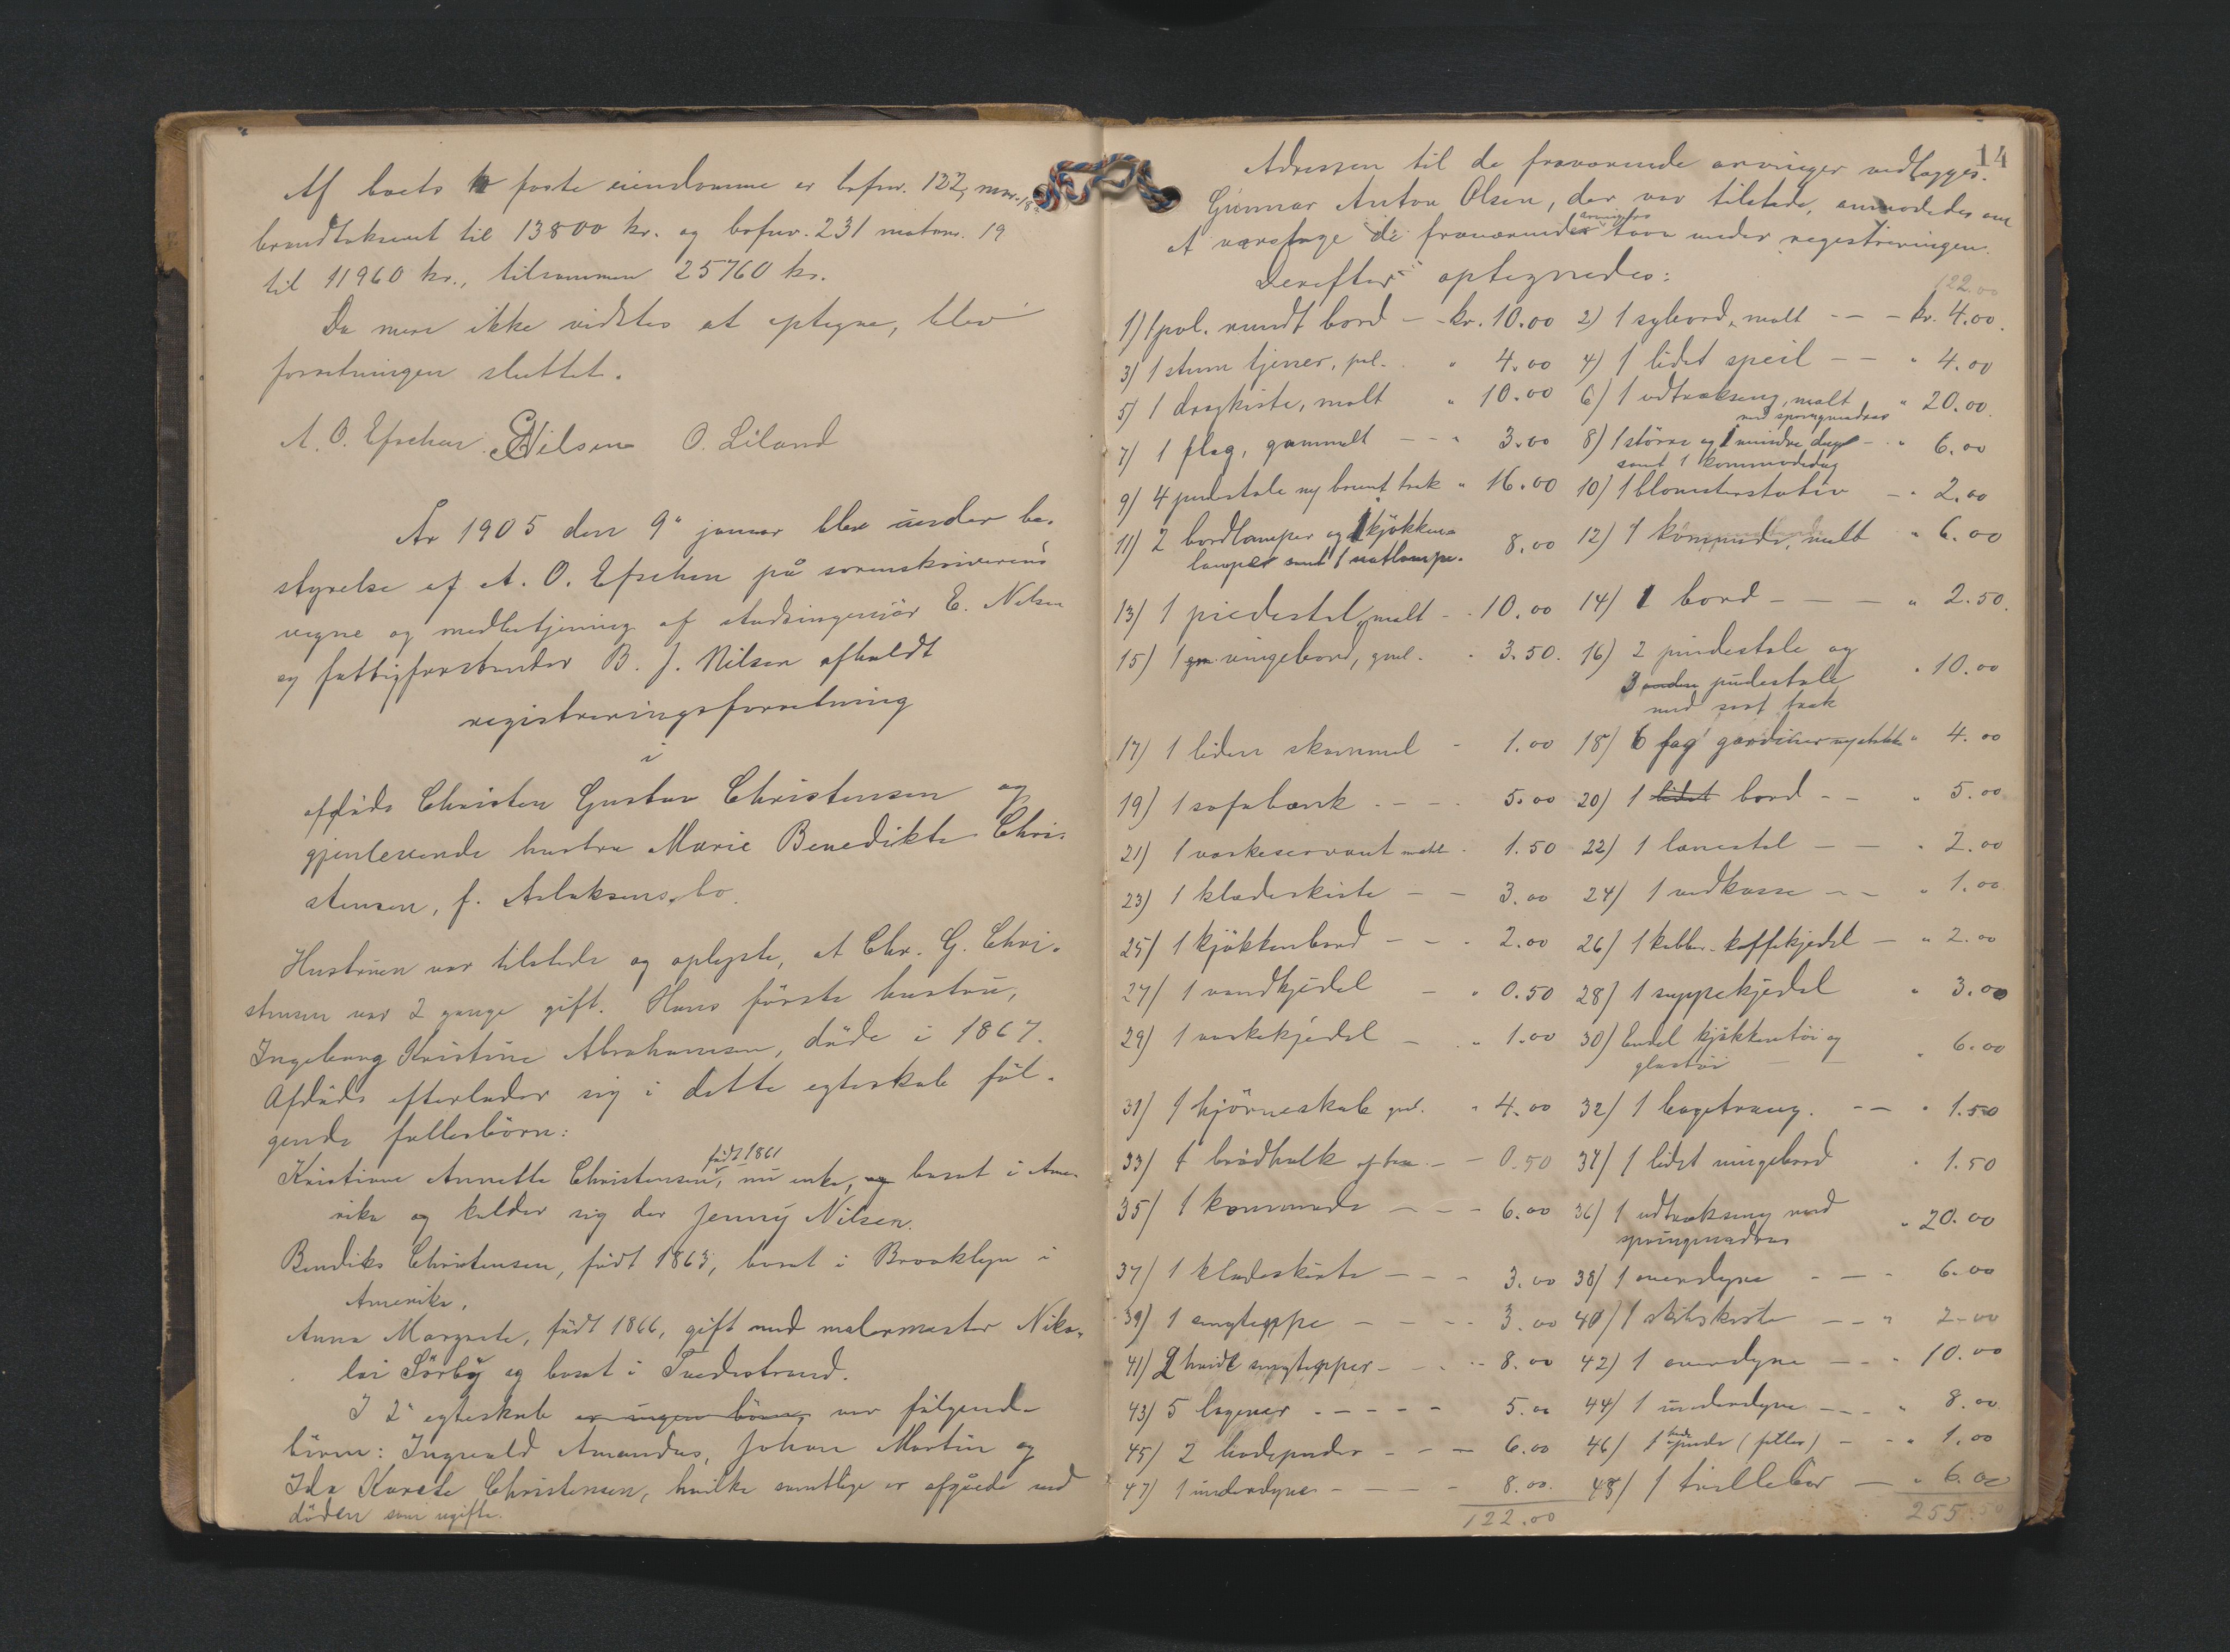 Af boets faste eiendomme er bofnr. 122, matr. 18
brandtakseret til 13800 kr. og bofnr. 231 matrnr. 19
til 11960 kr., tilsammen 25760 kr.
Da mere ikke vidstes at optegne, blev
forretningen sluttet.
A. O. Efschen. E Nilsen O. Liland
År 1905 den 9de januar blev under be-
styrelse af A. O. Efschen på sorenskriverens
vegne og medbetjening af stadsingeniör E. Nilsen
og fattigforstander B. J. Nilsen afholdt
registreringsforretning
i
afdøde Christen Gustav Christensen og
gjenlevende hustru Marie Benedikte Chri-
stensen, f. Aslaksens bo.
Hustruen var tilstede og oplyste, at Chr. G. Chri-
stensen var 2 gange gift. Hans förste hustru,
Ingeborg Kristine Abrahamsen, döde i 1867.
Afdöde efterlader sig i dette egteskab föl-
gende fællesbörn:
Kristiane Annette Christensen, födt 1861, nu enke, og bosat i Ame-
rika og kalder sig der Jenny Nilsen.
Bendiks Christensen, födt 1863, bosat i Brooklyn i
Amerika.
Anna Margrete, födt 1866, gift med malermester Niko-
lai Sörby og bosat i Tvedestrand.
I 2det egteskab er ingen börn, var fölgende
börn: Ingvald Amandus, Johan Martin og
Ida Karste Christensen, hvilke samtlige er afgåede ved
döden som ugifte.
14
Adressen til de fraværende arvinger vedlægges.
Gunnar Anton Olsen, der var tilstede, anmodedes om
at varetage de fraværende arvingers tarv under registreringen.
Derefter optegnedes:
122.00
1) 1 pol. rundt bord - kr. 10.00 2) 1 sybord, malt - - kr. 4.00.
3) 1 stum tjener, pol. " 4.00 4) 1 lidet speil - - " 4.00
5) 1 dragkiste, malt " 10.00 6) 1 udtræksseng, malt med springmadras " 20.00.
7) 1 flag, gammelt - - " 3.00 8) 1 större og 1 mindre dug - " 6.00
samt 1 kommodedug
9) 4 pudestole ny brunt træk " 16.00 10) 1 blomsterstativ - " 2.00
11) 2 bordlamper og 1 kjökken- 8.00 12) 1 kommode, malt " 6.00
lampe samt 1 natlampe.
13) 1 piedestal, malt - " 10.00 14) 1 bord - - - " 2.50.
15) 1 vingebord, gml. " 3.50. 16) 2 pindestole og
3 anden pudestole " 10.00
med sort træk
17) 1 liden skammel - 1.00 18) 6 fag gardiner " 4.00
19) 1 sofabænk - - - 5.00 20) 1 lidet bord - - " 5.00
21) 1 vaskeservant malt - 1.50 22) 1 lænestol - - " 2.00
23) 1 klædeskiste - - 3.00 24) 1 vedkasse - - " 1.00
25) 1 kjökkenbord - - - 2.00 26) 1 kobber-kaffekjedel - " 2.00
27) 1 vandkjedel - " 0.50 28) 1 suppekjedel " 3.00
29) 1 vaskekjedel - " 1.00 30) Endel kjökkentöi og
glastöi - - " 6.00
31) 1 hjörneskab gml. " 4.00 32) 1 bagetraug. - - " 1.50
33) 1 brödhulk af træ - - 0.50 34) 1 lidet vingebord " 1.50
35) 1 kommode - - - 6.00 36) 1 udtræksseng med
springmadras " 20.00
37) 1 klædeskiste - - - 3.00 38) 1 overdyne - - - 6.00
39) 1 sengteppe - - - - 3.00 40) 1 skibskiste - - " 2.00
41) 2 hvide sengtepper - - - 8.00 42) 1 overdyne - - " 10.00
43) 5 lagener - - - - - 5.00 44) 1 underdyne - - - " 8.00
45) 2 hodepuder - - - 6.00 46) 1 hodepude (filler) - - " 1.00
47) 1 underdyne - - - - 8.00. 48) 1 trillebör - " 6.00
122.00 255.50